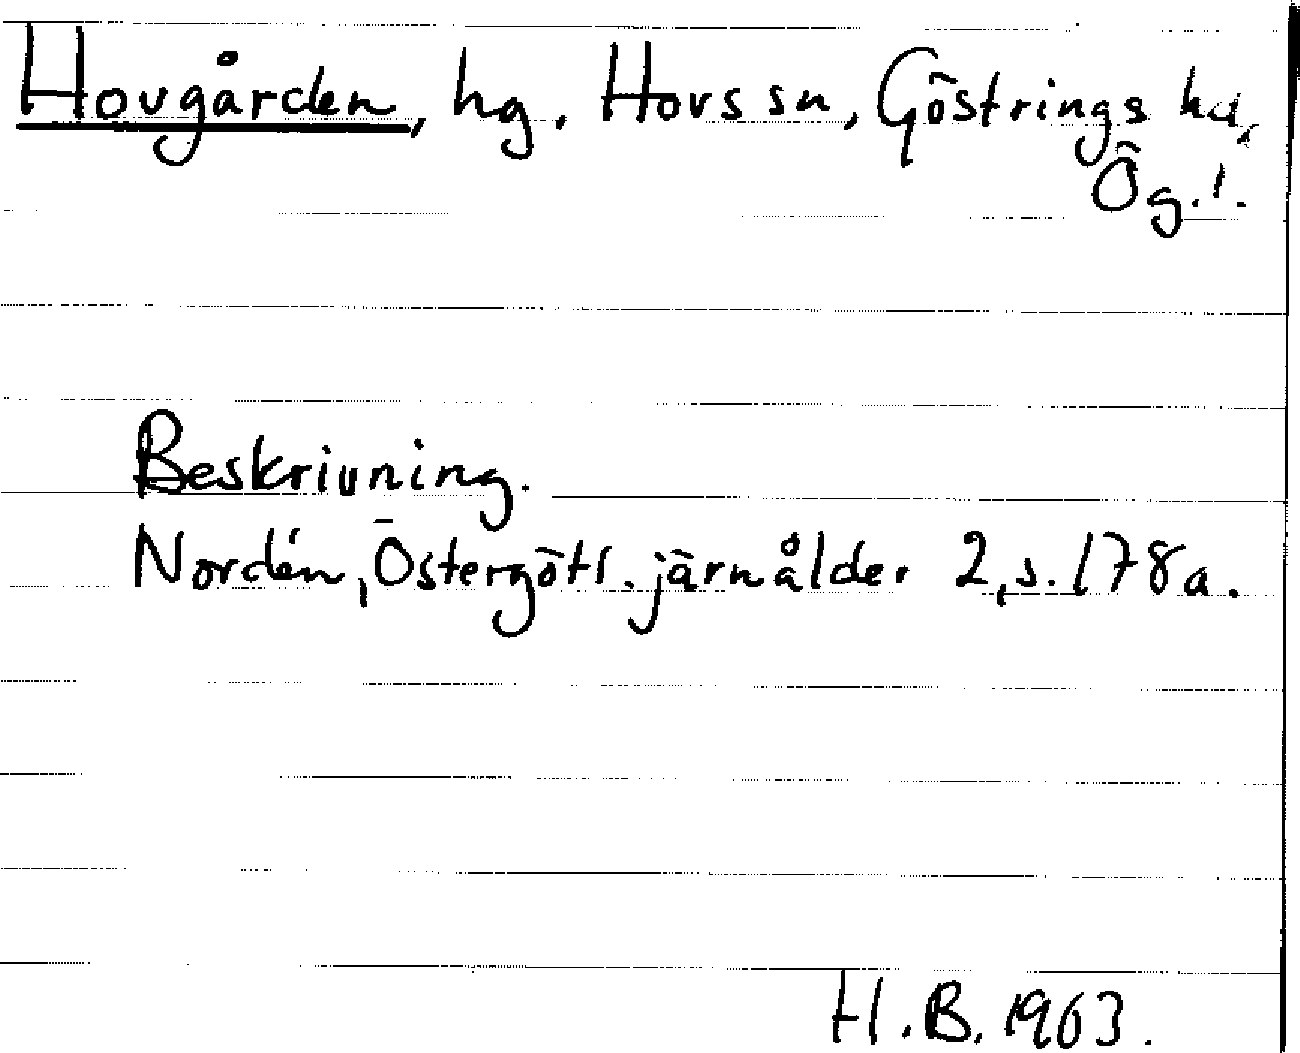 Hovgården, hg, Hovs sn, Göstrings hd,
Ög. l.
Beskrivning.
Nordén, Östergötl. järnålder 2, s. 178 a.
H.B. 1963.